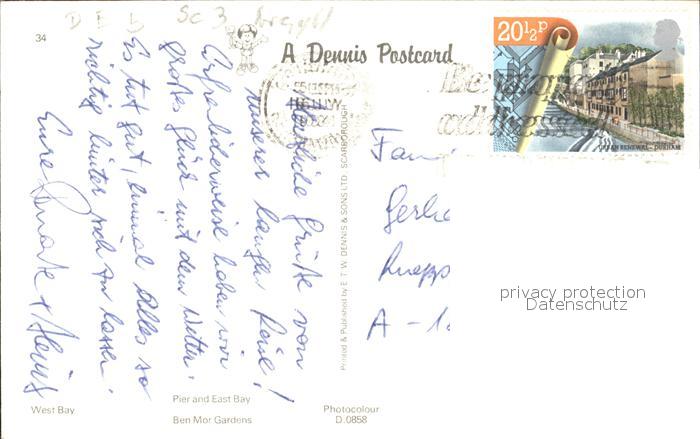 34
D E L
Sc 3 Argyll
A Dennis Postcard
20½P
URBAN RENEWAL - DURHAM
Herzliche Grüße von
unserer langen Reise!
Erfreulicherweise haben wir
großes Glück mit dem Wetter.
Es tut gut, einmal alles so
richtig hinter sich zu lassen.
Eure
Fam
Gerh
Knapp
A - 1
Printed & Published by E. T. W. DENNIS & SONS LTD. SCARBOROUGH
privacy protection
Datenschutz
West Bay
Pier and East Bay
Ben Mor Gardens
Photocolour
D.0858